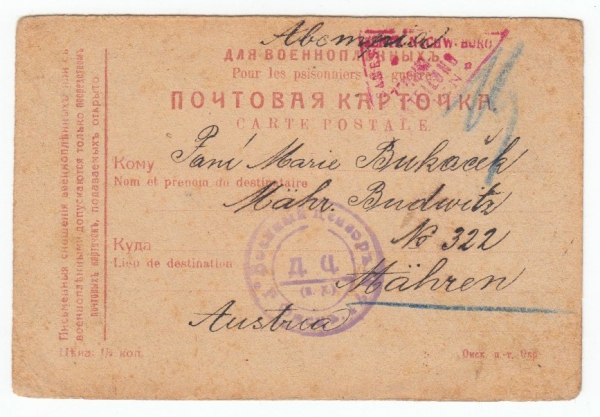 ДЛЯ ВОЕННОПЛѢННЫХЪ.
Pour les prisonniers de guerre
ПОЧТОВАЯ КАРТОЧКА.
CARTE POSTALE.
Кому
Paní Marie Bukaček
Nom et prénom du destinataire
Mähr. Budwitz
№ 322
Куда
Lieu de destination
Mähren
Austria
Военный Цензоръ
Д. Ц.
Письменныя сношенія военноплѣнныхъ или съ
военноплѣнными допускаются только посредствомъ
почтовыхъ карточекъ, подаваемыхъ открыто.
Цѣна 1½ коп.